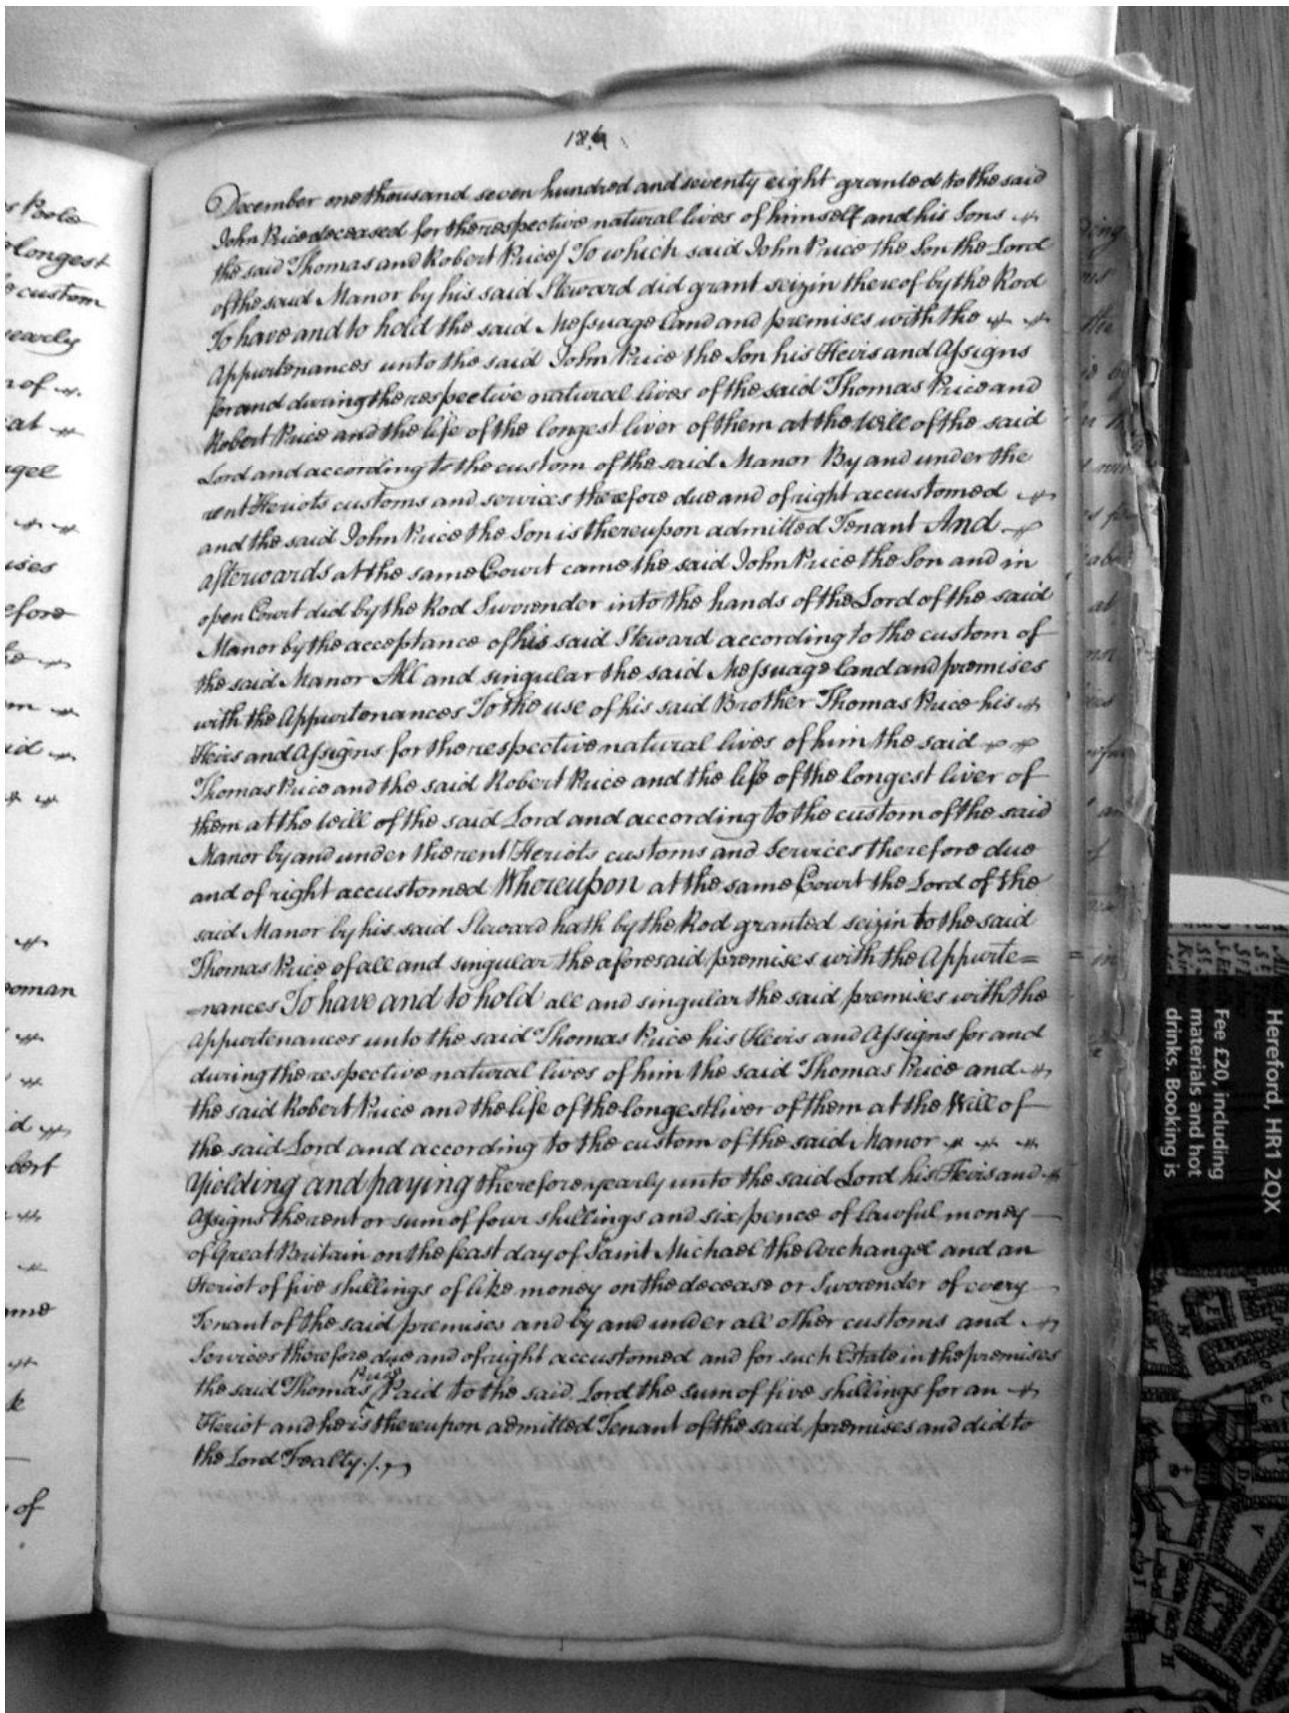 December one thousand seven hundred and seventy eight granted to the said
John Price deceased for the respective natural lives of himself and his Sons
the said Thomas and Robert Price) To which said John Price the Son the Lord
of the said Manor by his said Steward did grant seizin thereof by the Rod
To have and to hold the said Messuage land and premises with the
Appurtenances unto the said John Price the Son his Heirs and Assigns
for and during the respective natural lives of the said Thomas Price and
Robert Price and the life of the longest liver of them at the Will of the said
Lord and according to the custom of the said Manor By and under the
rent Heriots customs and services therefore due and of right accustomed
and the said John Price the Son is thereupon admitted Tenant And
afterwards at the same Court came the said John Price the Son and in
open Court did by the Rod Surrender into the hands of the Lord of the said
Manor by the acceptance of his said Steward according to the custom of
the said Manor All and singular the said Messuage land and premises
with the Appurtenances To the use of his said Brother Thomas Price his
Heirs and Assigns for the respective natural lives of him the said
Thomas Price and the said Robert Price and the life of the longest liver of
them at the Will of the said Lord and according to the custom of the said
Manor by and under the rent Heriots customs and Services therefore due
and of right accustomed Whereupon at the same Court the Lord of the
said Manor by his said Steward hath by the Rod granted seizin to the said
Thomas Price of all and singular the aforesaid premises with the Appurte=
=nances To have and to hold all and singular the said premises with the
Appurtenances unto the said Thomas Price his Heirs and Assigns for and
during the respective natural lives of him the said Thomas Price and
the said Robert Price and the life of the longest liver of them at the Will of
the said Lord and according to the custom of the said Manor
Yielding and paying therefore yearly unto the said Lord his Heirs and
Assigns the rent or sum of four shillings and six pence of lawful money
of Great Britain on the feast day of Saint Michael the Archangel and an
Heriot of five shillings of like money on the decease or Surrender of every
Tenant of the said premises and by and under all other customs and
Services therefore due and of right accustomed and for such Estate in the premises
the said Thomas Price Paid to the said Lord the sum of five shillings for an
Heriot and he is thereupon admitted Tenant of the said premises and did to
the Lord Fealty
Poole
longest
custom
yearly
of
at
efore
oman
bert
of
Hereford, HR1 2QX
Fee £20, including
materials and hot
drinks. Booking is